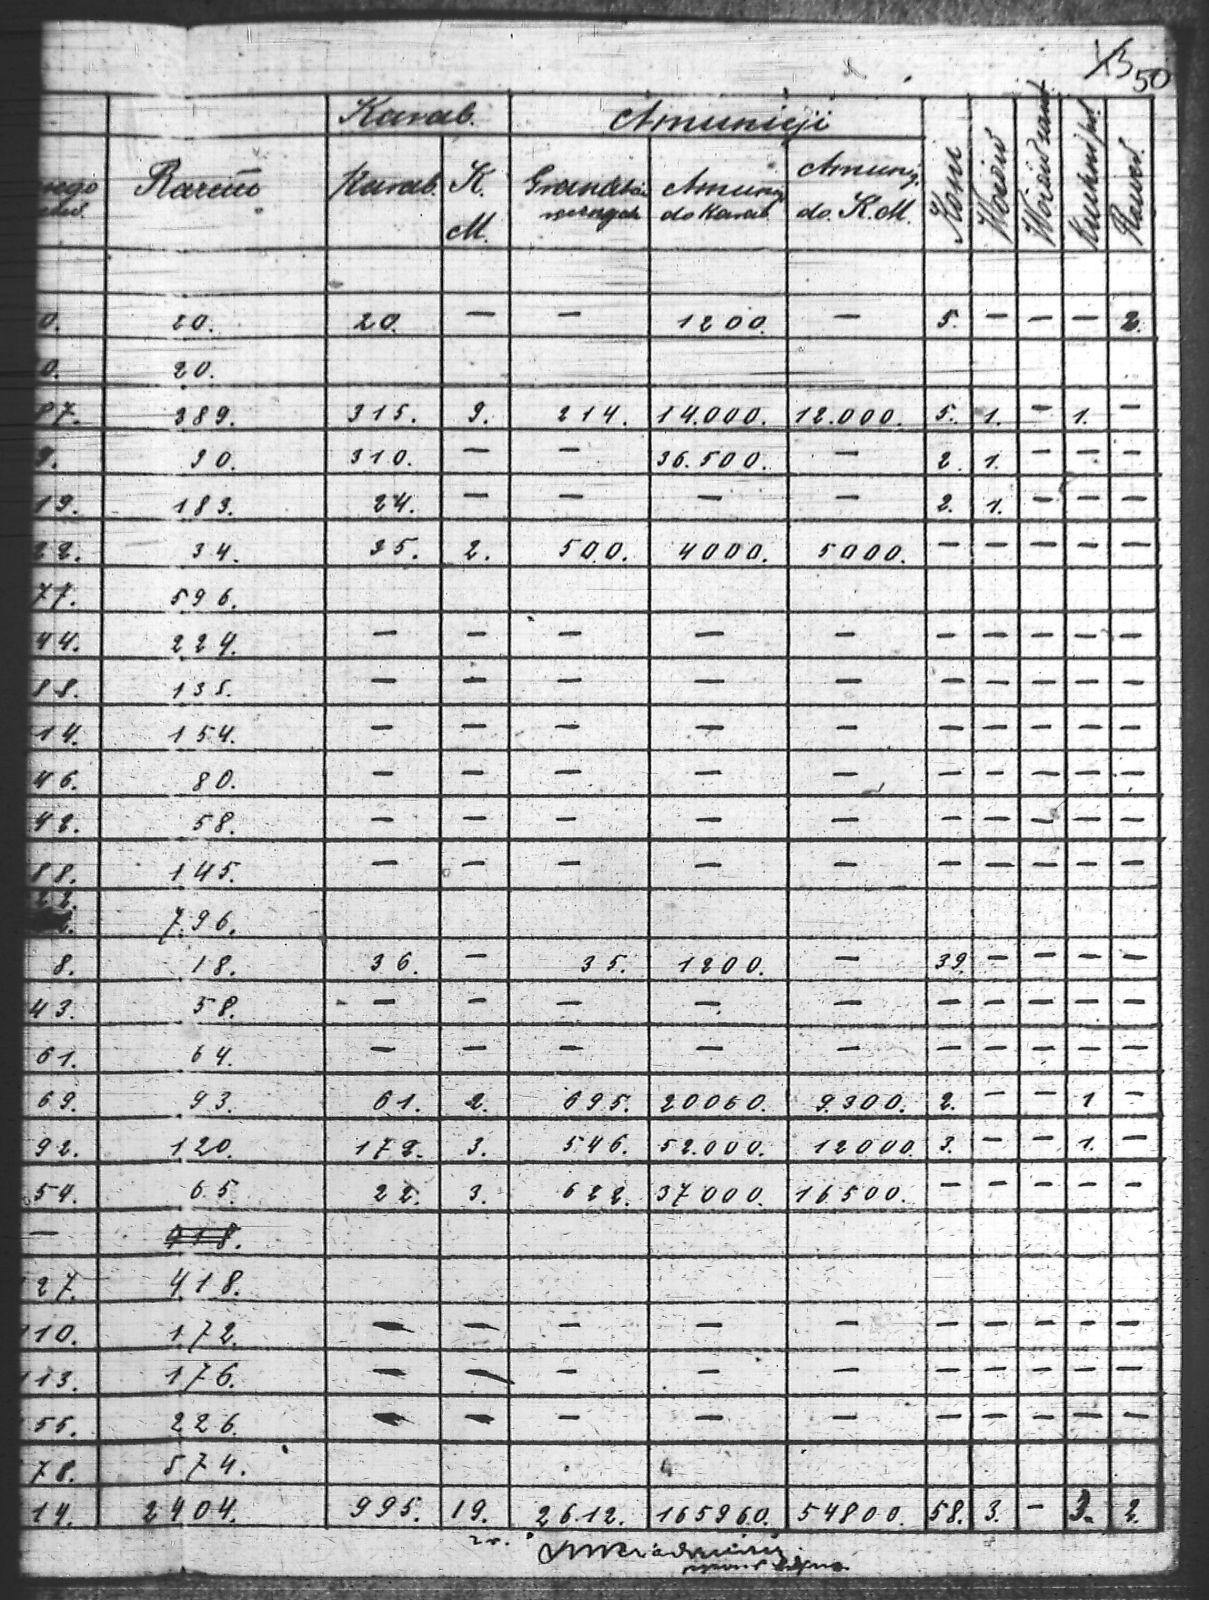 50
Karab. Amunicji
Razem Karab. K. M. Granatów ręcznych Amunicji do Karab. Amunicj. do K.M. Koni Wozów Kuchni
0. 20. 20. — — 1200. — 5. — — — 2.
0. 20.
87. 389. 315. 9. 214. 14.000. 12.000. 5. 1. — 1. —
9. 30. 310. — — 36.500. — 2. 1. — — —
19. 183. 24. — — — — 2. 1. — — —
22. 34. 35. 2. 500. 4000. 5000. — — — — —
77. 596.
44. 224. — — — — — — — — — —
88. 135. — — — — — — — — — —
14. 154. — — — — — — — — — —
46. 80. — — — — — — — — — —
42. 58. — — — — — — — — — —
88. 145. — — — — — — — — — —
22. 796.
8. 18. 36. — 35. 1200. — 39. — — — —
43. 58. — — — — — — — — — —
61. 64. — — — — — — — — — —
69. 93. 61. 2. 695. 20060. 9.300. 2. — — 1. —
92. 120. 172. 3. 546. 52.000. 12000. 3. — — 1. —
54. 65. 22. 3. 622. 37000. 16500. — — — — —
— 918.
127. 418.
110. 172. — — — — — — — — — —
113. 176. — — — — — — — — — —
55. 226. — — — — — — — — — —
78. 574.
14. 2404. 995. 19. 2612. 165960. 54800. 58. 3. — 3. 2.